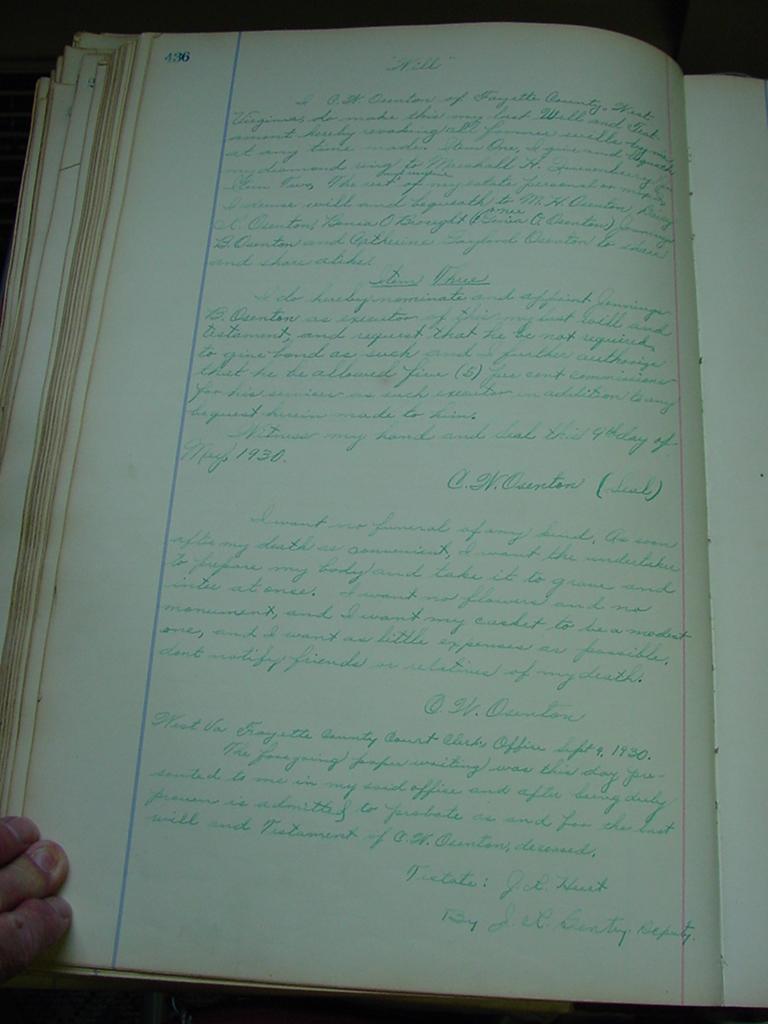 436
"Will"
I C.W. Osenton of Fayette County, West
Virginia, do make this my last Will and Test
ament hereby revoking all former wills by me
at any time made. Item One, I give and bequeath
my diamond ring to Marshall H. Quesenberry
Item Two, The rest of my estate personal or mixed
I devise will and bequeath to M.H. Osenton, Henry
Osenton, O Brought (nee O. Osenton) Jennings
B. Osenton and Catherine Gaylord Osenton to share
and share alike.
Item Three
I do hereby nominate and appoint Jennings
B. Osenton as executor of this my last will and
testament, and request that he be not required
to give bond as such and I further authorize
that he be allowed five (5) per cent commissions
for his services as such executor in addition to any
bequest herein made to him.
Witness my hand and seal this 9th day of
May, 1930.
C.W. Osenton (Seal)
I want no funeral of any kind. As soon
after my death as convenient, I want the undertaker
to prepare my body and take it to grave and
inter at once. I want no flowers and no
monument, and I want my casket to be a modest
one, and I want as little expenses as possible.
dont notify friends or relatives of my death.
C.W. Osenton
West Va Fayette County Court Clerk, Office Sept 9, 1930.
The foregoing paper writing was this day pre-
sented to me in my said office and after being duly
proven is admitted to probate as and for the last
will and Testament of C.W. Osenton, deceased.
Testate: J. L. Hurt
By J. L. Gentry Deputy.